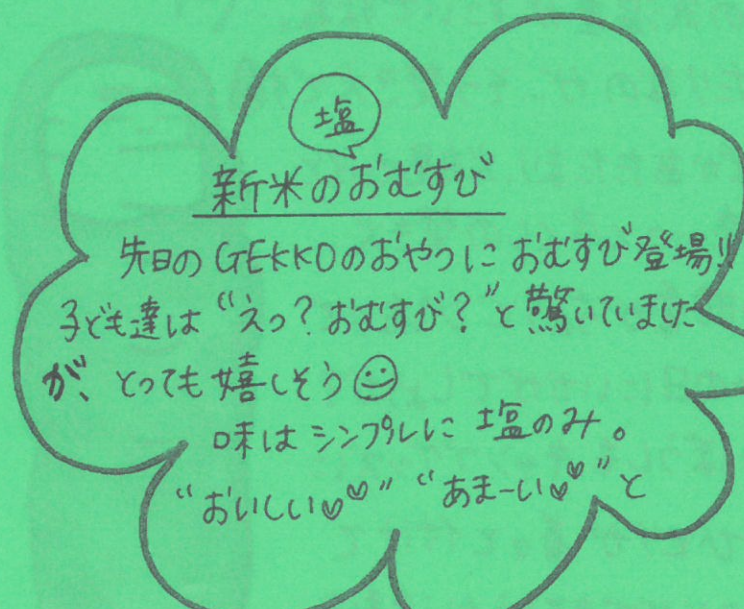 塩
新米のおむすび
先日のGEKKOのおやつに おむすび登場!!
子ども達は“えっ?おむすび?”と驚いていました
が、とっても嬉しそう☺
味はシンプルに 塩のみ。
“おいしい♡♡” “あまーい♡♡”と